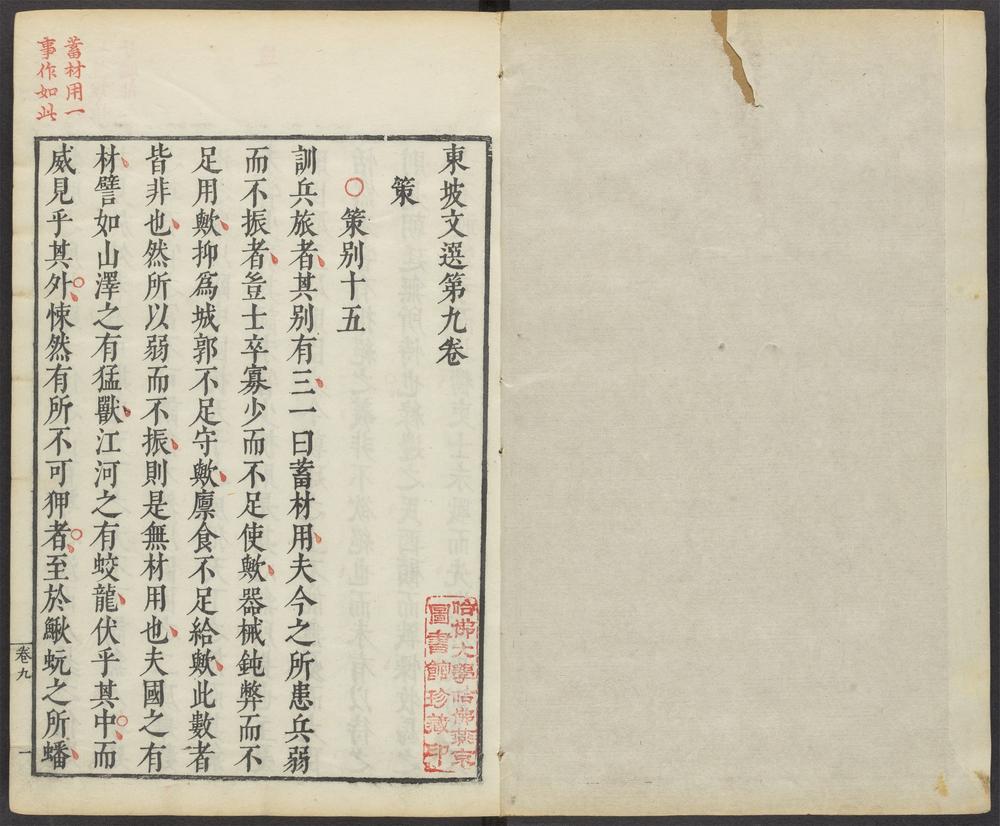 東坡文選第九卷
策
○策別十五
訓兵旅者其別有三一曰蓄材用夫今之所患兵弱
而不振者豈士卒寡少而不足使歟器械鈍弊而不
足用歟抑爲城郭不足守歟廩食不足給歟此數者
皆非也然所以弱而不振則是無材用也夫國之有
材譬如山澤之有猛獸江河之有蛟龍伏乎其中而
威見乎其外悚然有所不可狎者至於鰍蚖之所蟠
卷九
一
蓄材用一
事作如此
哈佛大學哈佛燕京
圖書館珍藏印